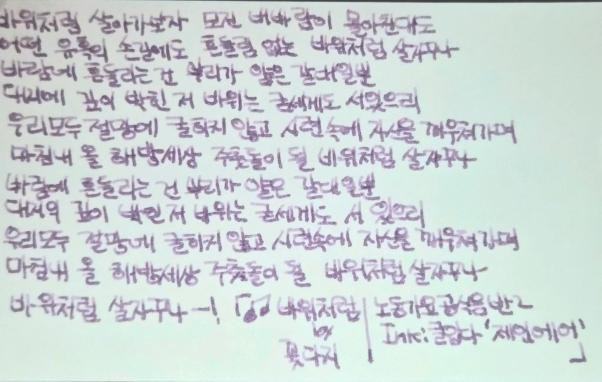 바위처럼 살아가보자 모진 비바람이 몰아친대도
어떤 유혹의 손길에도 흔들림 없는 바위처럼 살자꾸나
바람에 흔들리는 건 뿌리가 얕은 갈대일뿐
대지에 깊이 박힌 저 바위는 굳세게도 서있으리
우리모두 절망에 굴하지 않고 시련속에 자신을 깨우쳐가며
마침내 올 해방세상 주춧돌이 될 바위처럼 살자꾸나
바람에 흔들리는 건 뿌리가 얕은 갈대일뿐
대지의 깊이 박힌 저 바위는 굳세게도 서 있으리
우리모두 절망에 굴하지 않고 시련속에 자신을 깨우쳐가며
마침내 올 해방세상 주춧돌이 될 바위처럼 살자꾸나
바위처럼 살자꾸나―! 「♫ 바위처럼 | 노동가요공식음반2
by 꽃다지 | Ink: 글입다 '제인에어' 」